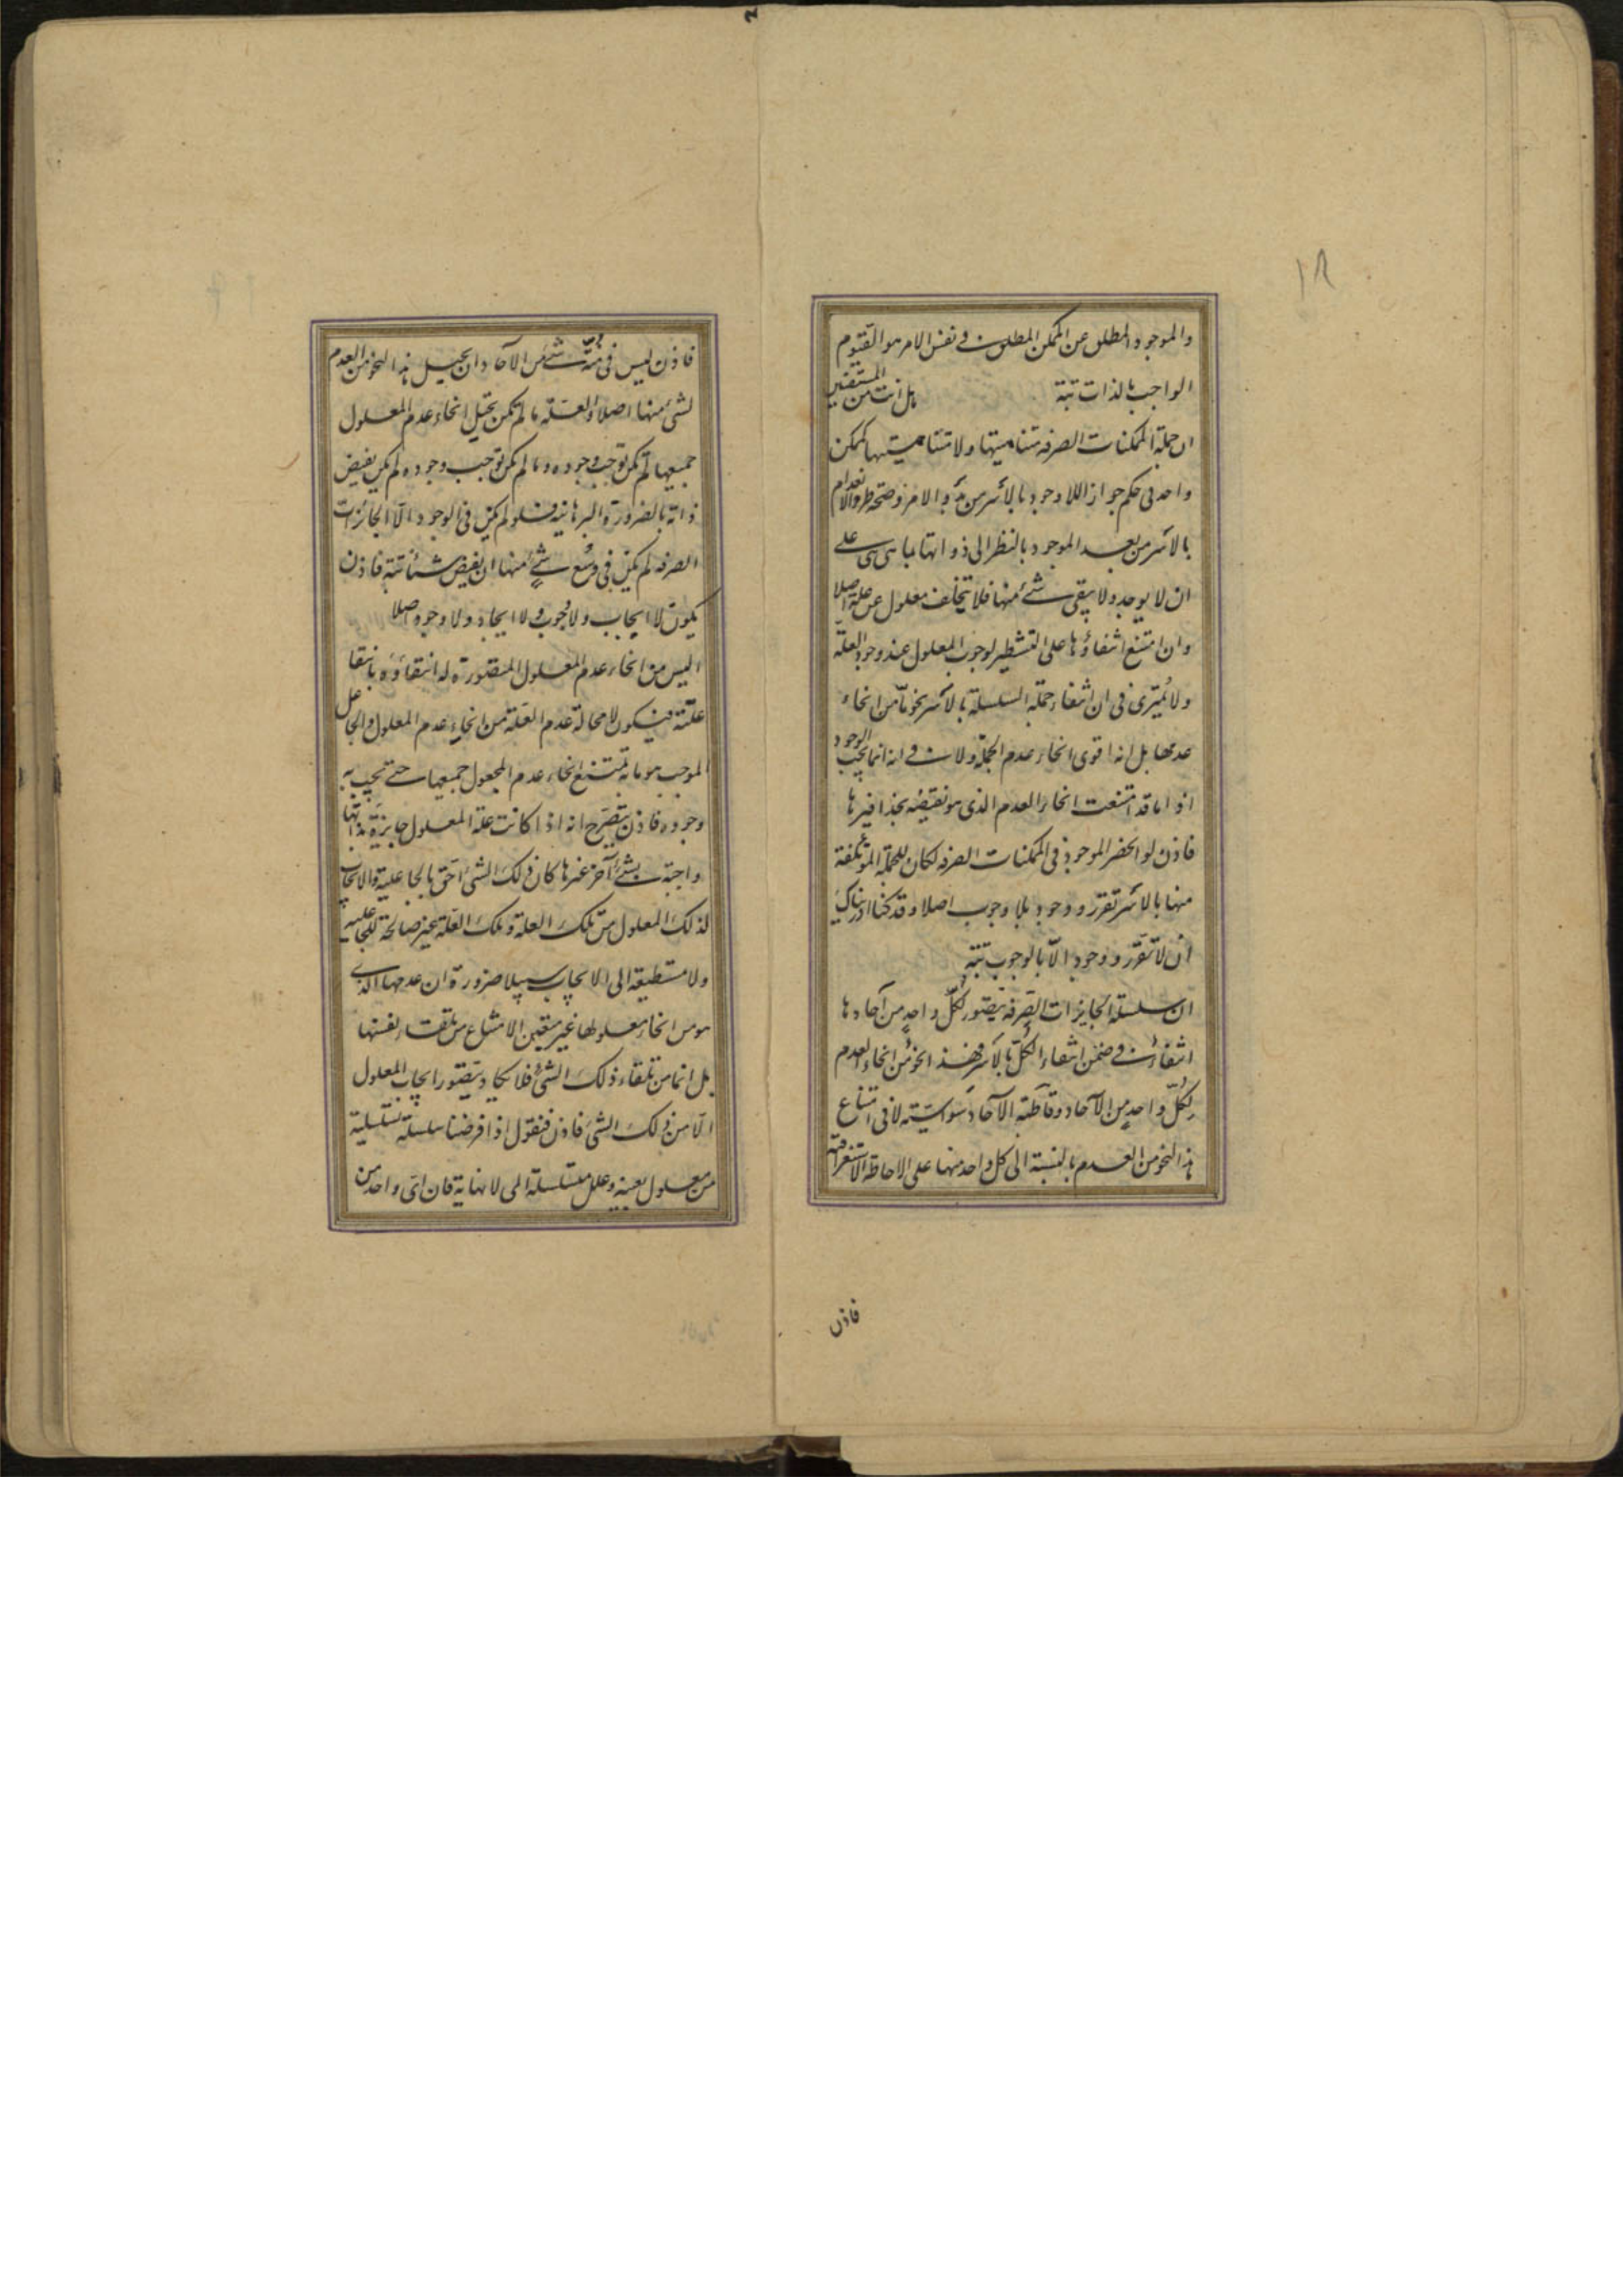 ١٨
والموجود المطلق عن الممكن المطلق في نفس الامر هو القيوم
الواجب بالذات بتة هل انت من المستيقنين
ان جملة الممكنات الصرفه متناهيتها ولا متناهيتها كممكن
واحد في حكم جواز اللاوجود بالأسر من بدو الامر وصحة طرو الانعدام
بالأسر من بعد الوجود بالنظر الى ذواتها بما هي هي على
ان لا يوجد ولا يبقى شئ منها فلا يتخلف معلول عن علته اصلا
وان امتنع انتفاؤها على التشطير لوجوب المعلول عند وجود العلة
ولا يمترى في ان انتفاء جملة السلسلة بالأسر نحو ما من انحاء
عدمها بل انه اقوى انحاء عدم الجملة ولا في انه انما يجب الوجود
اذا ما قد امتنعت انحاء العدم الذى هو نقيضه بحذافيرها
فاذن لو انحصر الموجود في الممكنات الصرفه لكان للجملة المؤتلفة
منها بالأسر تقرر ووجود بلا وجوب اصلا وقد كنا ادريناك
ان لا تقرر ووجود الا بالوجوب بتة
ان سلسلة الجايزات الصرفه يتصور لكل واحد من آحادها
انتفاء في ضمن انتفاء الكل بالأسر فهذا نحو من انحاء العدم
لكل واحد من الآحاد وقاطبة الآحاد سواسية لا في امتناع
هذا النحو من العدم بالنسبة الى كل واحد منها على الاحاطة الاستغراقية
فاذن
فاذن ليس في منة شئ من الآحاد ان يحيل هذا النحو من العدم
لشئ منها اصلا والعلة ما لم تكن تحيل انحاء عدم المعلول
جميعها لم تكن توجب وجوده وما لم تكن توجب وجوده لم تكن يفيض
ذاته بالضرورة البرهانية فلو لم يكن في الوجود الا الجائزات
الصرفه لم يكن في وسع شئ منها ان يفيض شيئا بتة فاذن
يكون لا ايجاب ولا وجوب ولا ايجاد ولا وجود اصلا
اليس من انحاء عدم المعلول المتصورة له انتفاؤه بانتفاء
علته فيكون لا محالة عدم العلة من انحاء عدم المعلول والجاعل
الموجب هو ما به تمتنع انحاء عدم المجعول جميعها حتى يجب به
وجوده فاذن يتصرح انه اذا كانت علة المعلول جايزة بذاتها
واجبة بشئ آخر غيرها كان ذلك الشئ احق بالجاعلية والايجاب
لذلك المعلول من تلك العلة وتلك العلة غير صالحة للجاعلية
ولا مستطيعة الى الايجاب سبيلا ضرورة ان عدمها الذى
هو من انحاء عدم معلولها غير متعين الامتناع من تلقاء نفسها
بل انما من تلقاء ذلك الشئ فلا يكاد يتصور ايجاب المعلول
الا من ذلك الشئ فاذن فنقول اذا فرضنا سلسلة
من معلول بعينه وعلل متسلسلة الى لا نهاية فان اى واحد من